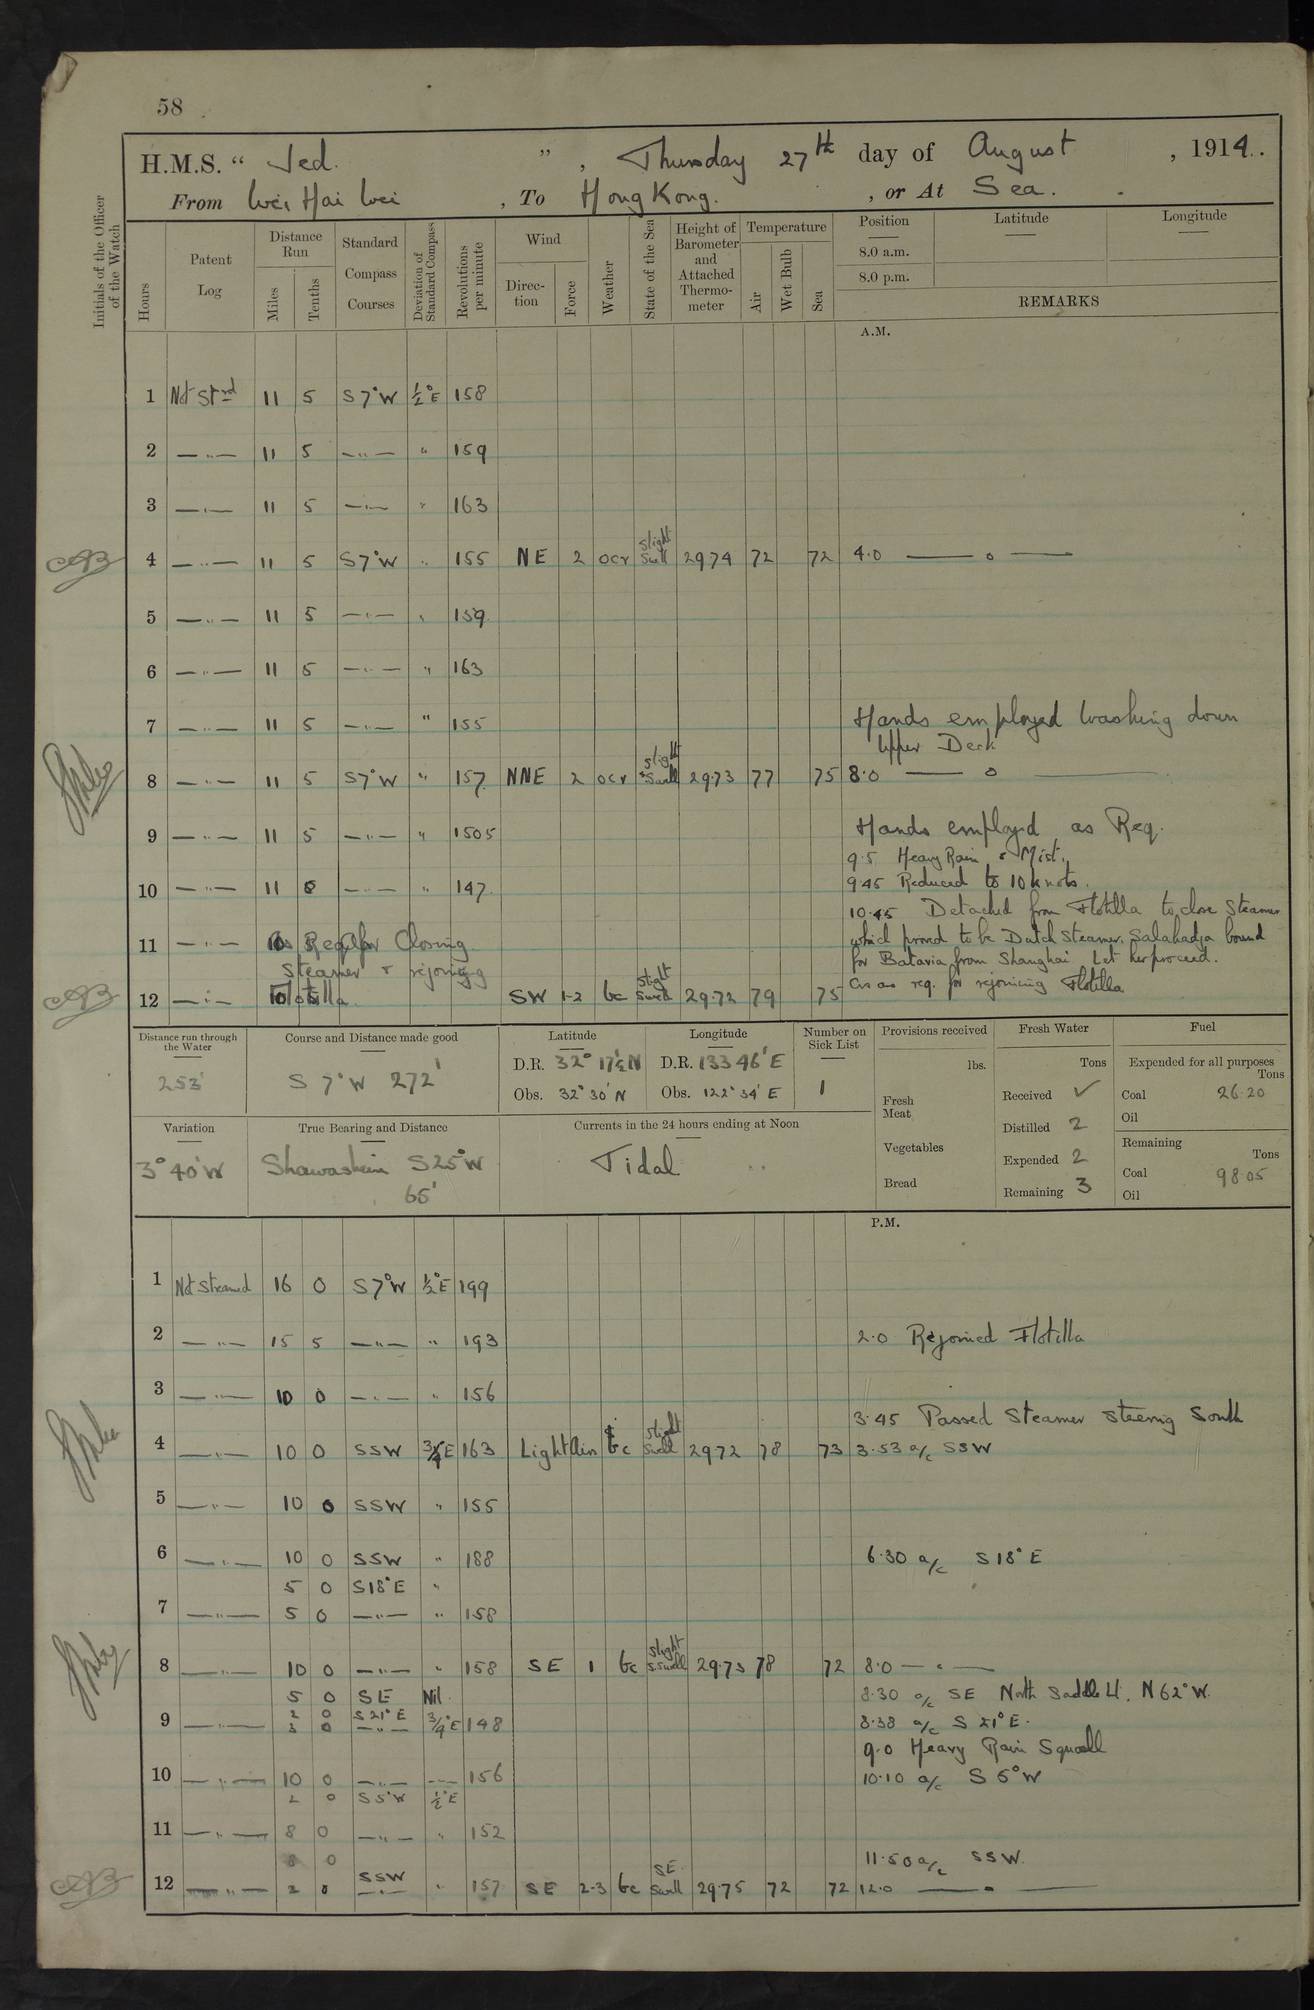 58
H.M.S. " Jed. ", Thursday 27th day of August, 1914.
From Wei Hai Wei, To Hong Kong., or At Sea.
Initials of the Officer of the Watch
Hours
Patent Log
Distance Run
Miles
Tenths
Standard Compass Courses
Deviation of Standard Compass
Revolutions per minute
Wind
Direction
Force
Weather
State of the Sea
Height of Barometer and Attached Thermometer
Temperature
Air
Wet Bulb
Sea
Position
Latitude
Longitude
8.0 a.m.
8.0 p.m.
REMARKS
A.M.
1 Not Strd 11 5 S7°W ½°E 158
2 —"— 11 5 —"— " 159
3 —"— 11 5 —"— " 163
4 —"— 11 5 S7°W " 155 NE 2 ocr slight swell 29.74 72 72 4.0 — o —
5 —"— 11 5 —"— " 159
6 —"— 11 5 —"— " 163
7 —"— 11 5 —"— " 155 Hands employed washing down
Upper Deck
8 —"— 11 5 S7°W " 157 NNE 2 ocr slight swell 29.73 77 75 8.0 — o —
9 —"— 11 5 —"— " 150.5 Hands employed as Req.
9.5 Heavy Rain & Mist.
10 —"— 11 " 147 9.45 Reduced to 10 knots.
10.45 Detached from Flotilla to close Steamer
11 —"— As Req. for Closing which proved to be Dutch Steamer, Salahadja bound
Steamer & rejoining for Batavia from Shanghai Let her proceed.
12 —"— Flotilla. SW 1-2 bc slight swell 29.72 79 75 Cos as req. for rejoining Flotilla
Distance run through the Water
253'
Course and Distance made good
S 7°W 272'
Latitude
D.R. 32° 17½'N
Obs. 32° 30' N
Longitude
D.R. 133 46' E
Obs. 122° 34' E
Number on Sick List
1
Provisions received
lbs.
Fresh Meat
Vegetables
Bread
Fresh Water
Tons
Received ✓
Distilled 2
Expended 2
Remaining 3
Fuel
Expended for all purposes
Tons
Coal 26.20
Oil
Remaining
Tons
Coal 98.05
Oil
Variation
3° 40' W
True Bearing and Distance
Shawashein S25°W
65'
Currents in the 24 hours ending at Noon
Tidal
P.M.
1 Not Streamed 16 0 S7°W ½°E 199
2 —"— 15 5 —"— " 193 2.0 Rejoined Flotilla
3 —"— 10 0 —"— " 156
3.45 Passed Steamer steering South
4 —"— 10 0 SSW ¾E 163 Light Airs bc slight swell 29.72 78 73 3.53 a/c SSW
5 —"— 10 0 SSW " 155
6 —"— 10 0 SSW " 188 6.30 a/c S18°E
5 0 S18°E "
7 —"— 5 0 —"— " 158
8 —"— 10 0 —"— " 158 SE 1 bc slight S.swell 29.73 78 72 8.0 —"—
5 0 SE Nil. 8.30 a/c SE North Saddle Lt. N62°W.
2 0 S21°E
9 —"— 3 0 —"— ¾°E 148 8.38 a/c S21°E.
9.0 Heavy Rain Squall
10 —"— 10 0 —"— —"— 156 10.10 a/c S5°W
2 0 S5°W ½°E
11 —"— 8 0 —"— " 152
8 0 11.50 a/c SSW.
12 —"— 2 0 SSW " 157 SE 2-3 bc SE Swell 29.75 72 72 12.0 — o —